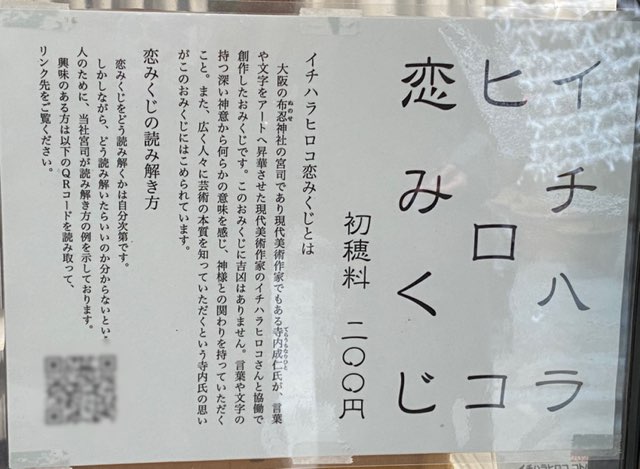 イチハラ
ヒロコ
恋みくじ
初穂料 二〇〇円
イチハラヒロコ恋みくじとは
大阪の布忍神社の宮司であり現代美術作家でもある寺内成仁氏が、言葉
や文字をアートへ昇華させた現代美術作家のイチハラヒロコさんと協働で
創作したおみくじです。このおみくじに吉凶はありません。言葉や文字の
持つ深い神意から何らかの意味を感じ、神様との関わりを持っていただく
こと。また、広く人々に芸術の本質を知っていただくという寺内氏の思い
がこのおみくじにはこめられています。
恋みくじの読み解き方
恋みくじをどう読み解くかは自分次第です。
しかしながら、どう読み解いたらいいのか分からないという
人のために、当社宮司が読み解き方の例を示しております。
興味のある方は以下のQRコードを読み取って、
リンク先をご覧ください。
イチハラヒロコ